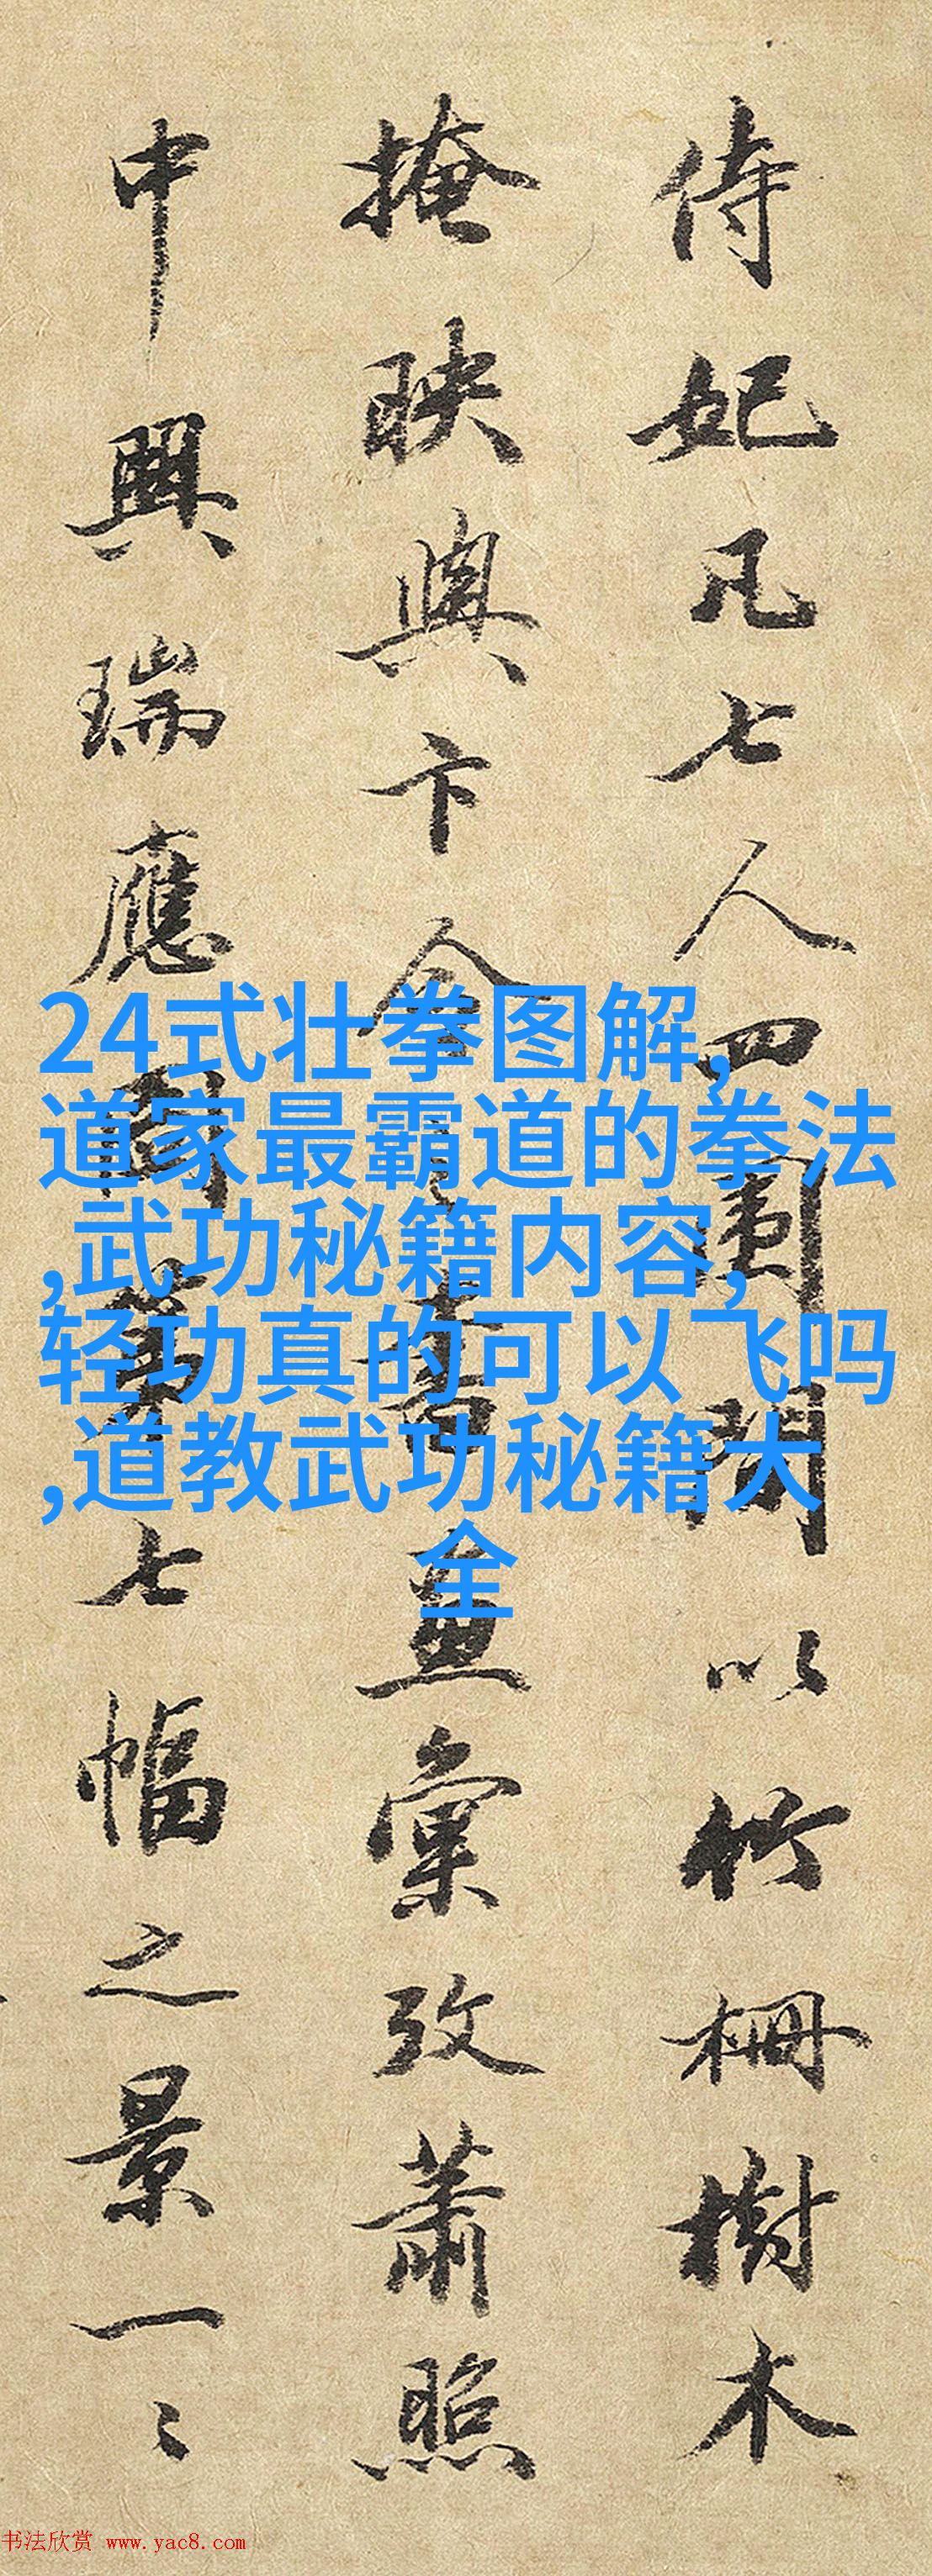 侍妃凡七人四圍間以竹柵樹木
掩映與卞令之書畫彙攷蕭照
中興瑞應圖第七幅之景一〻
24式壮拳图解,
道家最霸道的拳法
,武功秘籍内容,
轻功真的可以飞吗
,道教武功秘籍大
全
书法欣赏 www.yac8.com